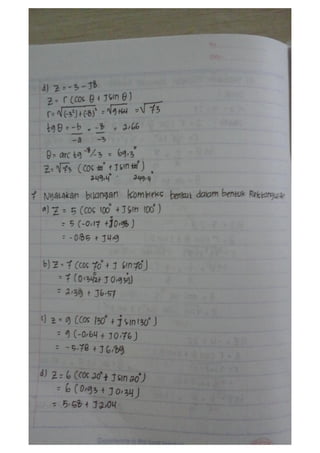 d) Z = -3 - J8
Z = r (cos θ + J sin θ)
r = √(-3²)+(-8)² = √9+64 = √73
tg θ = -b/-a = -8/-3 = 2.66
θ = arc tg -8/-3 = 69.3°
Z = √73 (cos + J sin )
249.4° 249.4°
7. Nyatakan bilangan kompleks berikut dalam bentuk Rektangular
a) Z = 5 (cos 100° + J sin 100°)
= 5 (-0.17 + J0.98)
= -0.85 + J4.9
b) Z = 7 (cos 70° + J sin 70°)
= 7 (0.342 + J 0.939)
= 2.39 + J6.57
c) Z = 9 (cos 130° + J sin 130°)
= 9 (-0.64 + J0.76)
= -5.78 + J6.89
d) Z = 6 (cos 20° + J sin 20°)
= 6 (0.93 + J0.34)
= 5.58 + J2.04